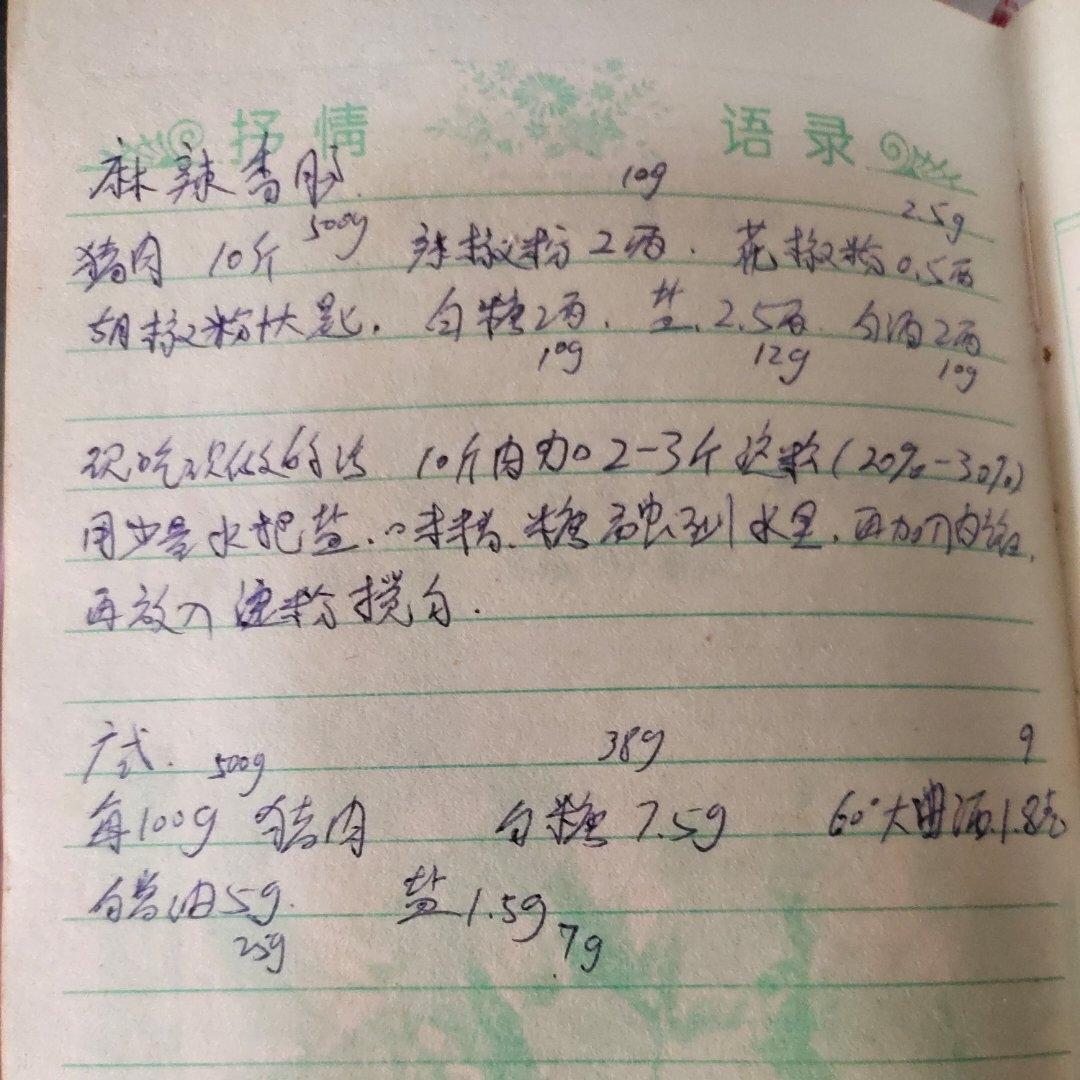 抒情 语录
麻辣香肠. 10g
500g 2.5g
猪肉 10斤 辣椒粉2两. 花椒粉0.5两
胡椒粉1大匙. 白糖2两. 盐.2.5两 白酒2两
10g 12g 10g
现吃现做的法 10斤肉加2-3斤淀粉(20%-30%)
用少量水把盐.味精.糖融到水里.再加入肉馅.
再放入淀粉搅匀.
广式. 500g 38g 9
每100g 猪肉 白糖 7.5g 60°大曲酒1.8克
白酱油5g. 盐1.5g
25g 7g